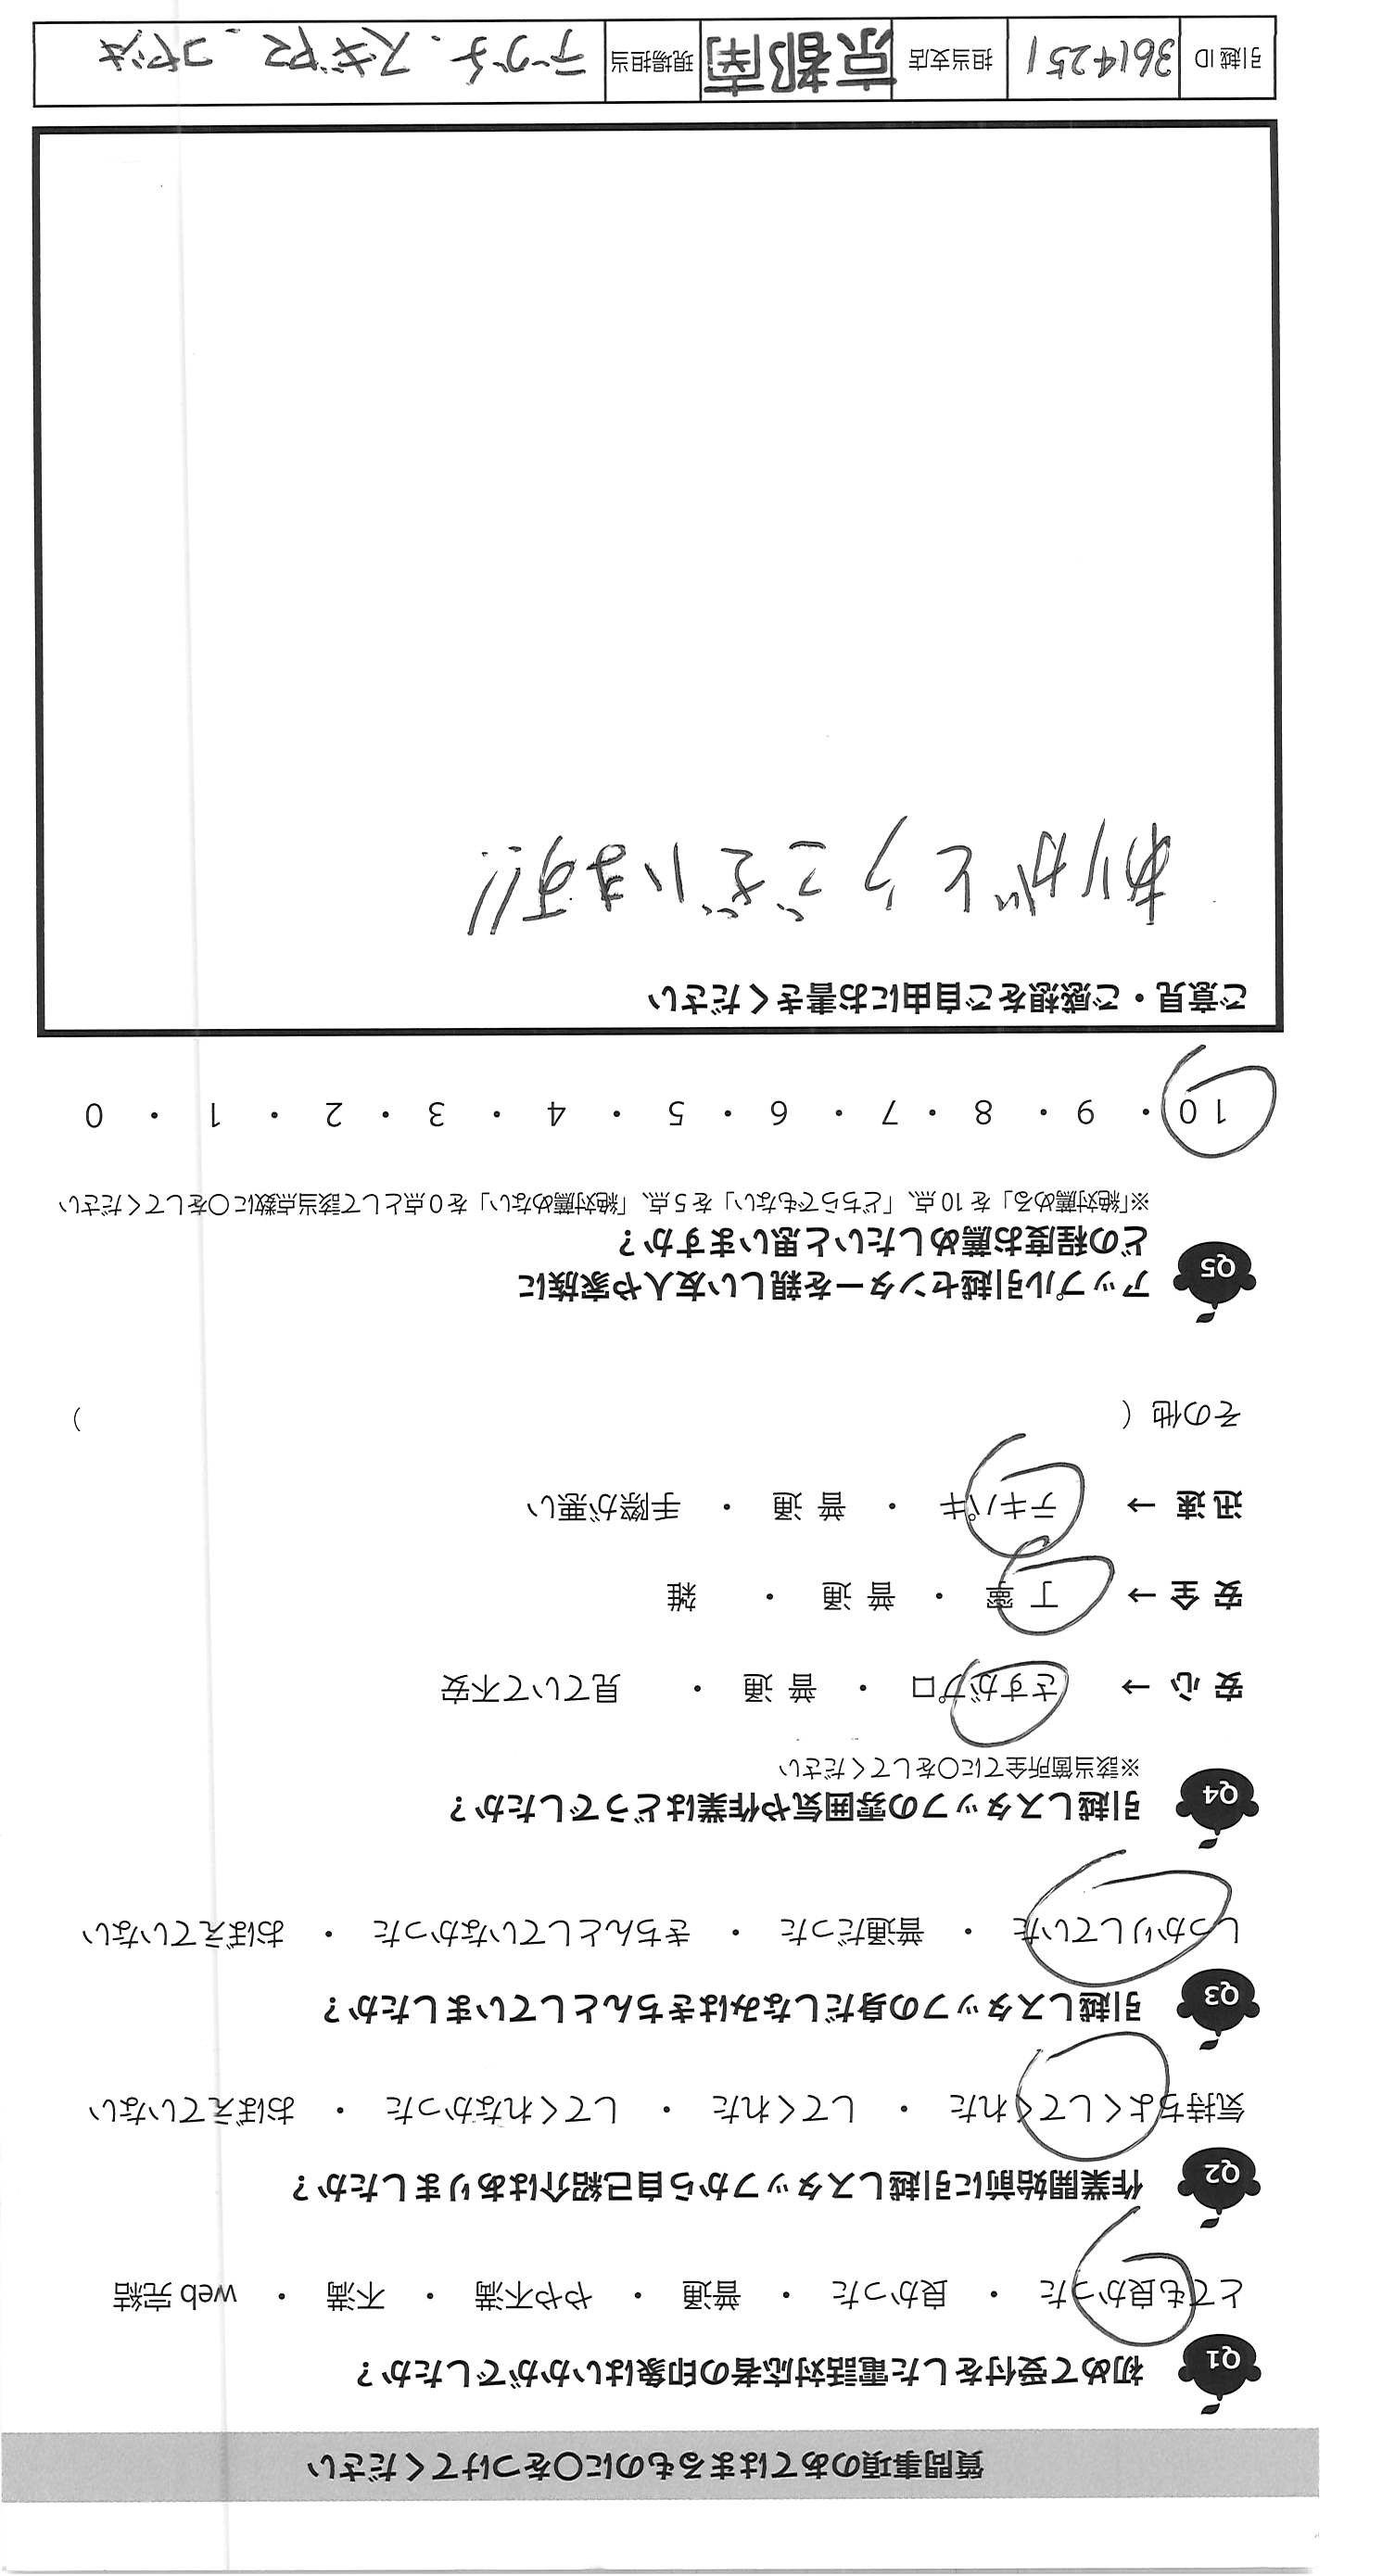 質問事項のあてはまるものに〇をつけてください
Q1 初めて受付をした電話対応者の印象はいかがでしたか？
とても良かった ・ 良かった ・ 普通 ・ やや不満 ・ 不満 ・ web 完結
Q2 作業開始前に引越しスタッフから自己紹介はありましたか？
気持ちよくしてくれた ・ してくれた ・ してくれなかった ・ おぼえていない
Q3 引越しスタッフの身だしなみはきちんとしていましたか？
しっかりしていた ・ 普通だった ・ きちんとしていなかった ・ おぼえていない
Q4 引越しスタッフの雰囲気や作業はどうでしたか？
※該当箇所全てに〇をしてください
安 心 → さすがプロ ・ 普 通 ・ 見ていて不安
安 全 → 丁 寧 ・ 普 通 ・ 雑
迅 速 → テキパキ ・ 普 通 ・ 手際が悪い
その他（ ）
Q5 アップル引越センターを親しい友人や家族に
どの程度お薦めしたいと思いますか？
※「絶対薦める」を 10 点、「どちらでもない」を 5 点、「絶対薦めない」を 0 点として該当点数に〇をしてください
10 ・ 9 ・ 8 ・ 7 ・ 6 ・ 5 ・ 4 ・ 3 ・ 2 ・ 1 ・ 0
ご意見・ご感想をご自由にお書きください
ありがとうございます!!
引越 ID 3614251 担当支店 京都南 現場担当 デグチ、スギヤマ、